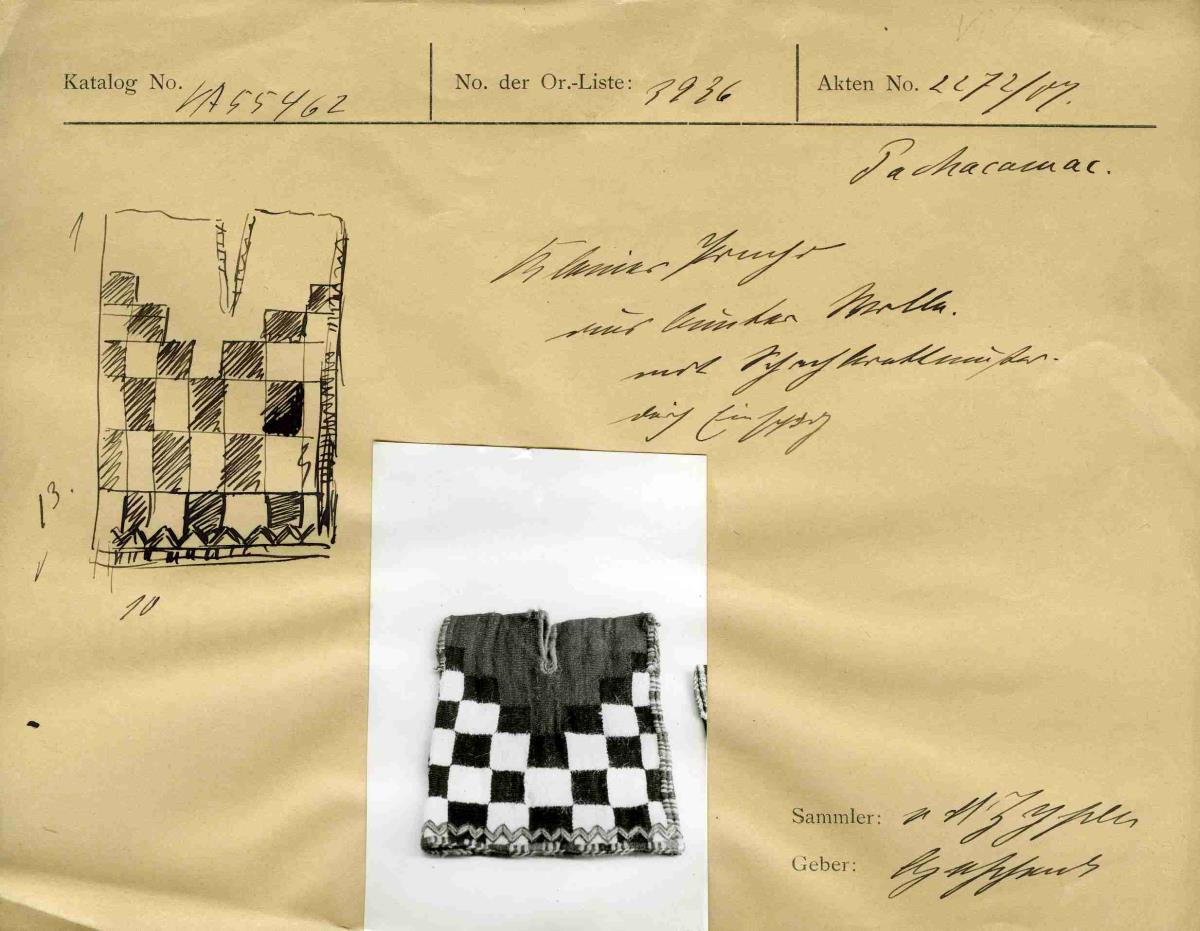 Katalog No. VA 55462
No. der Or.-Liste: 3936
Akten No. 2272/07.
Pachacamac.
Kleiner Poncho
aus bunter Wolle.
mit Schachbrettmuster.
1
13.
10
Sammler: v d Zypen
Geber: